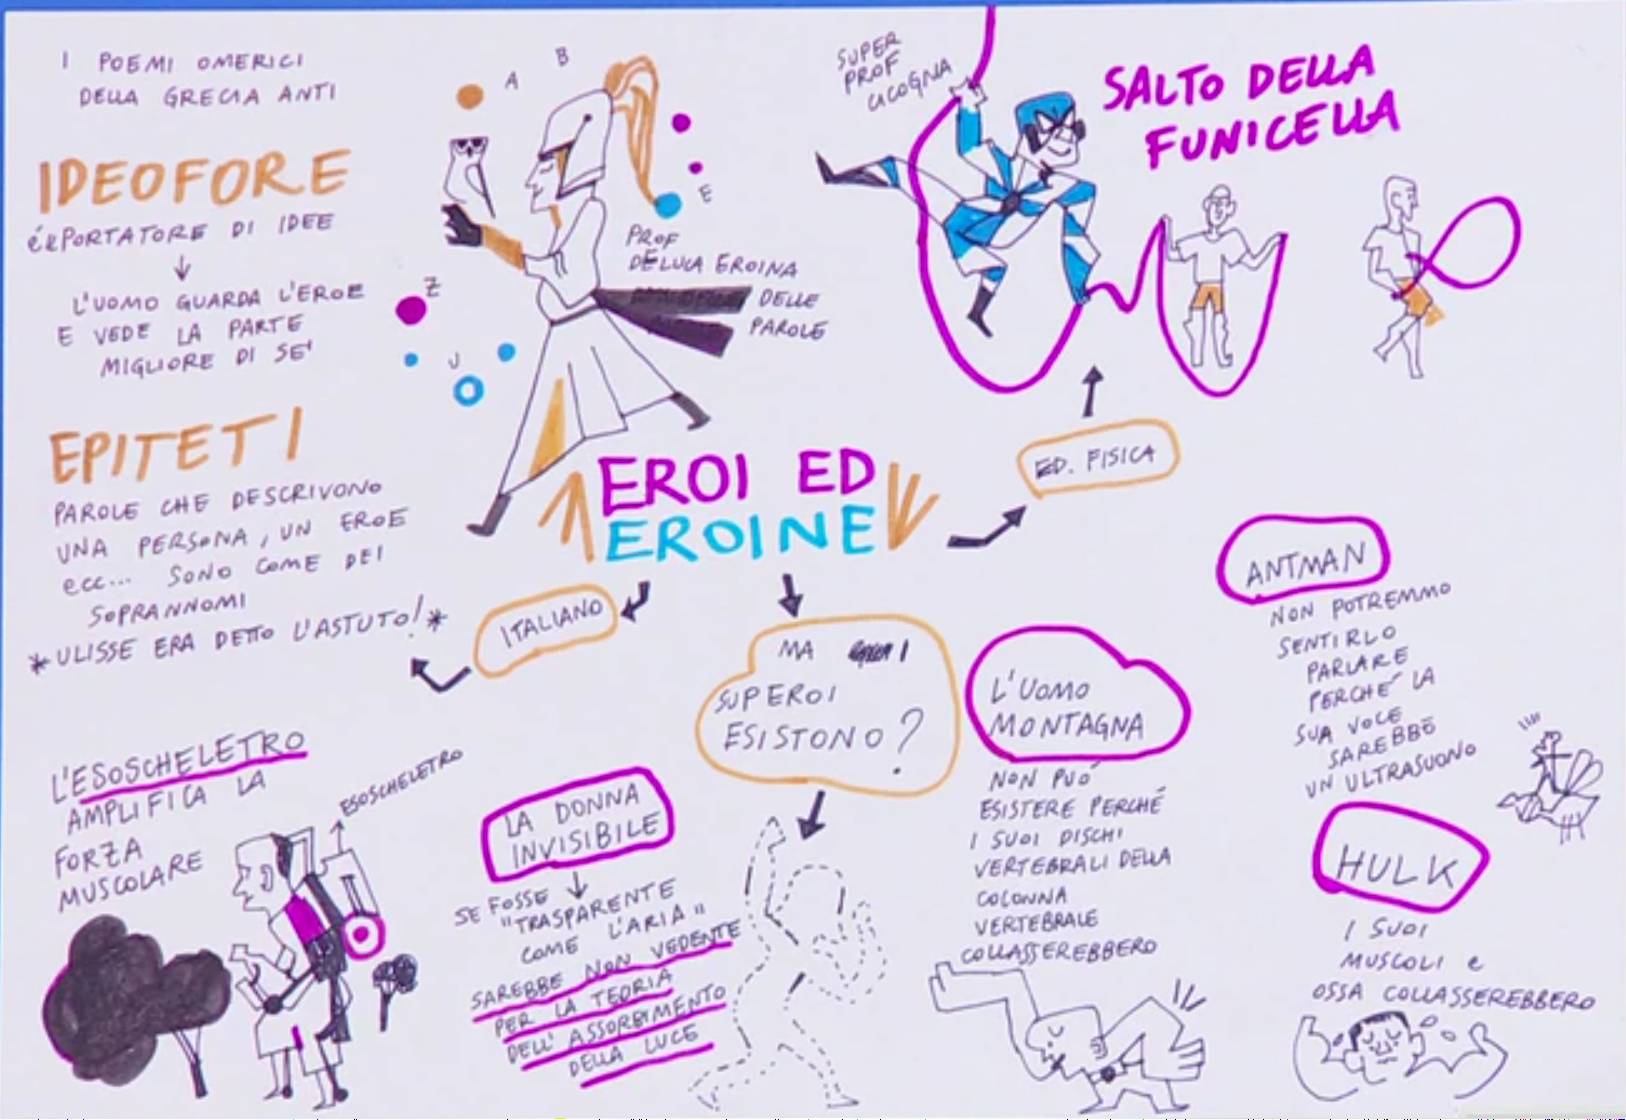 I POEMI OMERICI
DELLA GRECIA ANTI
IDEOFORE
PORTATORE DI IDEE
L'UOMO GUARDA L'EROE
E VEDE LA PARTE
MIGLIORE DI SE'
EPITETI
PAROLE CHE DESCRIVONO
UNA PERSONA, UN EROE
ecc... SONO COME DEI
SOPRANNOMI
*ULISSE ERA DETTO L'ASTUTO!*
A
B
E
Z
U
PROF
DELUCA EROINA
DELLE
PAROLE
SUPER
PROF
CICOGNA
SALTO DELLA
FUNICELLA
EROI ED
EROINE
ED. FISICA
ITALIANO
MA I
SUPEROI
ESISTONO?
L'ESOSCHELETRO
AMPLIFICA LA
FORZA
MUSCOLARE
ESOSCHELETRO
LA DONNA
INVISIBILE
SE FOSSE
"TRASPARENTE
COME L'ARIA"
SAREBBE NON VEDENTE
PER LA TEORIA
DELL'ASSORBIMENTO
DELLA LUCE
L'UOMO
MONTAGNA
NON PUO'
ESISTERE PERCHÉ
I SUOI DISCHI
VERTEBRALI DELLA
COLONNA
VERTEBRALE
COLLASSEREBBERO
ANTMAN
NON POTREMMO
SENTIRLO
PARLARE
PERCHE' LA
SUA VOCE
SAREBBE
UN ULTRASUONO
HULK
I SUOI
MUSCOLI e
OSSA COLLASSEREBBERO